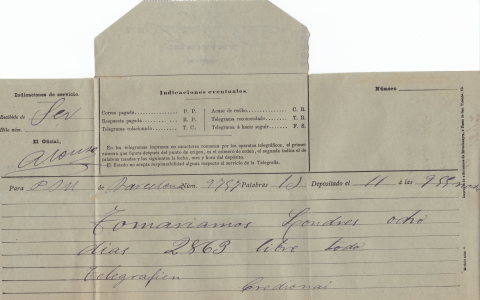 Indicaciones de servicio.
Indicaciones eventuales
Número
Recibido de Sev
Correo pagado P. P.
Acuse de recibo C. R.
Respuesta pagada R. P.
Telegrama recomendado T. R.
Hilo núm.
Telegrama colacionado T. C.
Telegrama á hacer seguir F. S.
El Oficial,
Alonso
En los telegramas impresos en caracteres romanos por los aparatos telegráficos, el primer
número que figura después del punto de origen, es el número de orden, el segundo indica el de
palabras tasadas y los siguientes la fecha, mes y hora del depósito.
El Estado no acepta responsabilidad alguna respecto al servicio de la Telegrafía.
Para de Barcelona Núm. 2757 Palabras 13 Depositado el 11 á las 9
Tomariamos Londres ocho
dias 2863 libre todo
telegrafien
Credionai